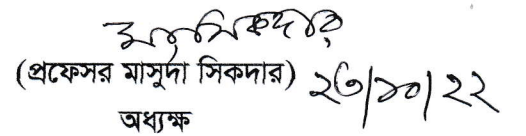 মাসিকদার
(প্রফেসর মাসুদা সিকদার) ২৩/১০/২২
অধ্যক্ষ